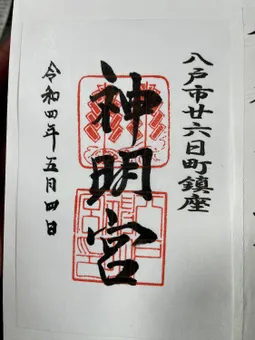 八戸市廿六日町鎮座
神明宮
令和四年五月四日